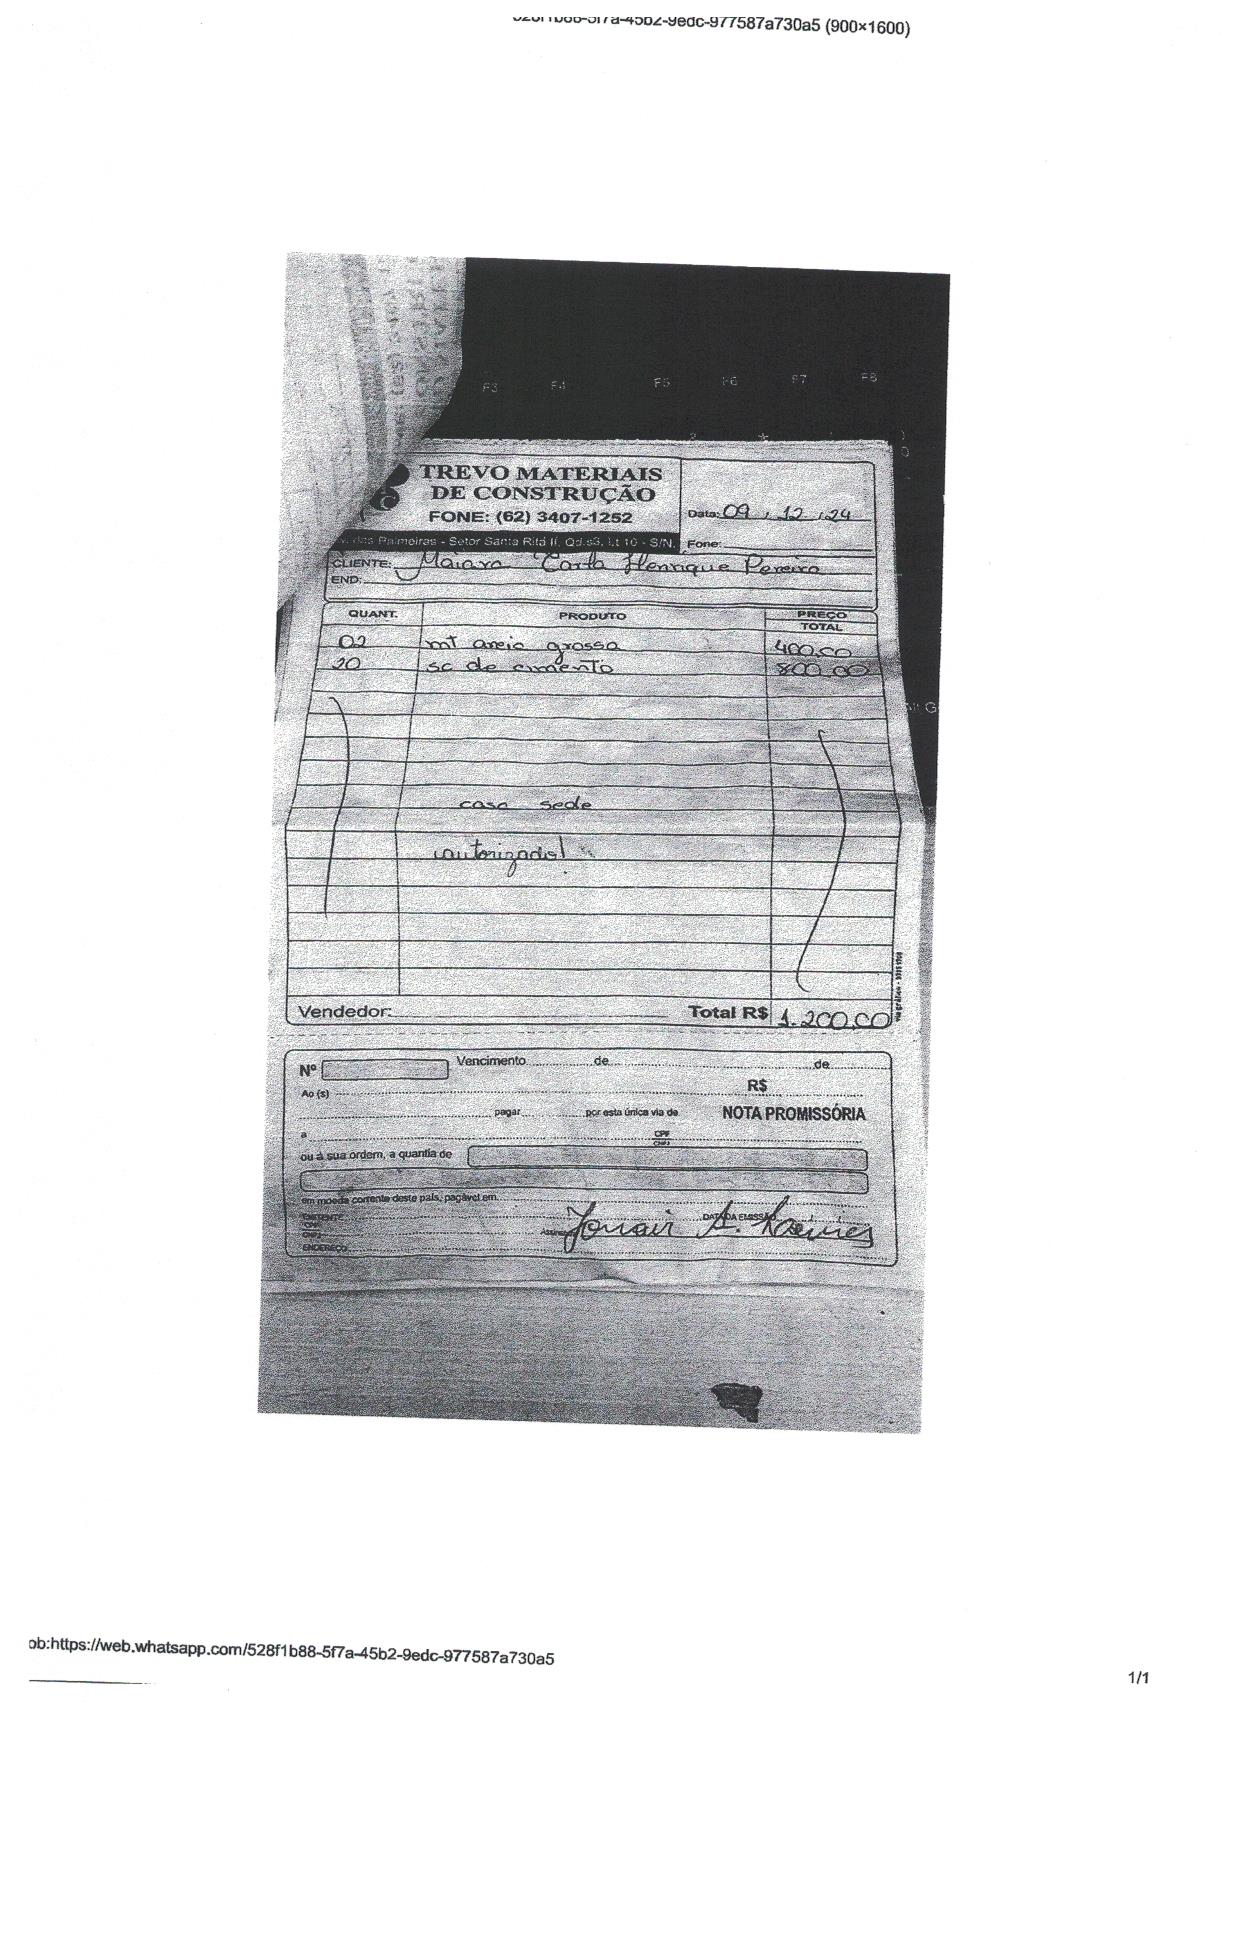 -5f7a-45b2-9edc-977587a730a5 (900×1600)
F3 F4 F5 F6 F7 F8
TREVO MATERIAIS
DE CONSTRUÇÃO
FONE: (62) 3407-1252
Data: 09 / 12 / 24
das Palmeiras - Setor Santa Rita II, Qd.s3, Lt 10 - S/N.
Fone:
CLIENTE: Maiara Carla Henrique Pereira
END:
QUANT. PRODUTO PREÇO
TOTAL
02 mt areia grossa 400,00
20 sc de cimento 800,00
casa sede
autorizado!
Vendedor: Total R$ 1.200,00
Nº Vencimento de de
R$
Ao (s)
pagar por esta única via de NOTA PROMISSÓRIA
a CPF
CNPJ
ou à sua ordem, a quantia de
em moeda corrente deste país, pagável em
EMITENTE DATA DA EMISSÃO
CPF
CNPJ
ENDEREÇO
ob:https://web.whatsapp.com/528f1b88-5f7a-45b2-9edc-977587a730a5
1/1